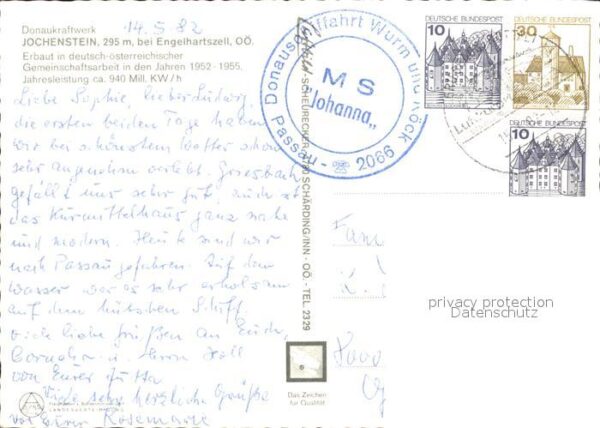 Donaukraftwerk
14.5.82
JOCHENSTEIN, 295 m, bei Engelhartszell, OÖ.
Erbaut in deutsch-österreichischer
Gemeinschaftsarbeit in den Jahren 1952 - 1955.
Jahresleistung ca. 940 Mill. KW/h
Liebe Sophie, lieber Ludwig,
die ersten beiden Tage haben
wir bei schönstem Wetter schon
sehr angenehm verlebt. Griesbach
gefällt uns sehr gut, auch ist
das Kurmittelhaus ganz nahe
und modern. Heute sind wir
nach Passau gefahren. Auf dem
Wasser war es sehr erholsam
auf dem hübschen Schiff.
Viele liebe Grüße an Euch,
Cornelia u. Herrn
von Eurer Jutta
Viele sehr herzliche Grüße
von Eurer Rosemarie
LANDESWERTE
Donauschiffahrt Wurm und Köck
MS
"Johanna"
Passau - 2066
SCHEURECKER
SCHÄRDING/INN - OÖ - TEL. 2329
10
DEUTSCHE BUNDESPOST
30
DEUTSCHE BUNDESPOST
10
DEUTSCHE BUNDESPOST
Fam
8000
privacy protection
Datenschutz
Das Zeichen
für Qualität